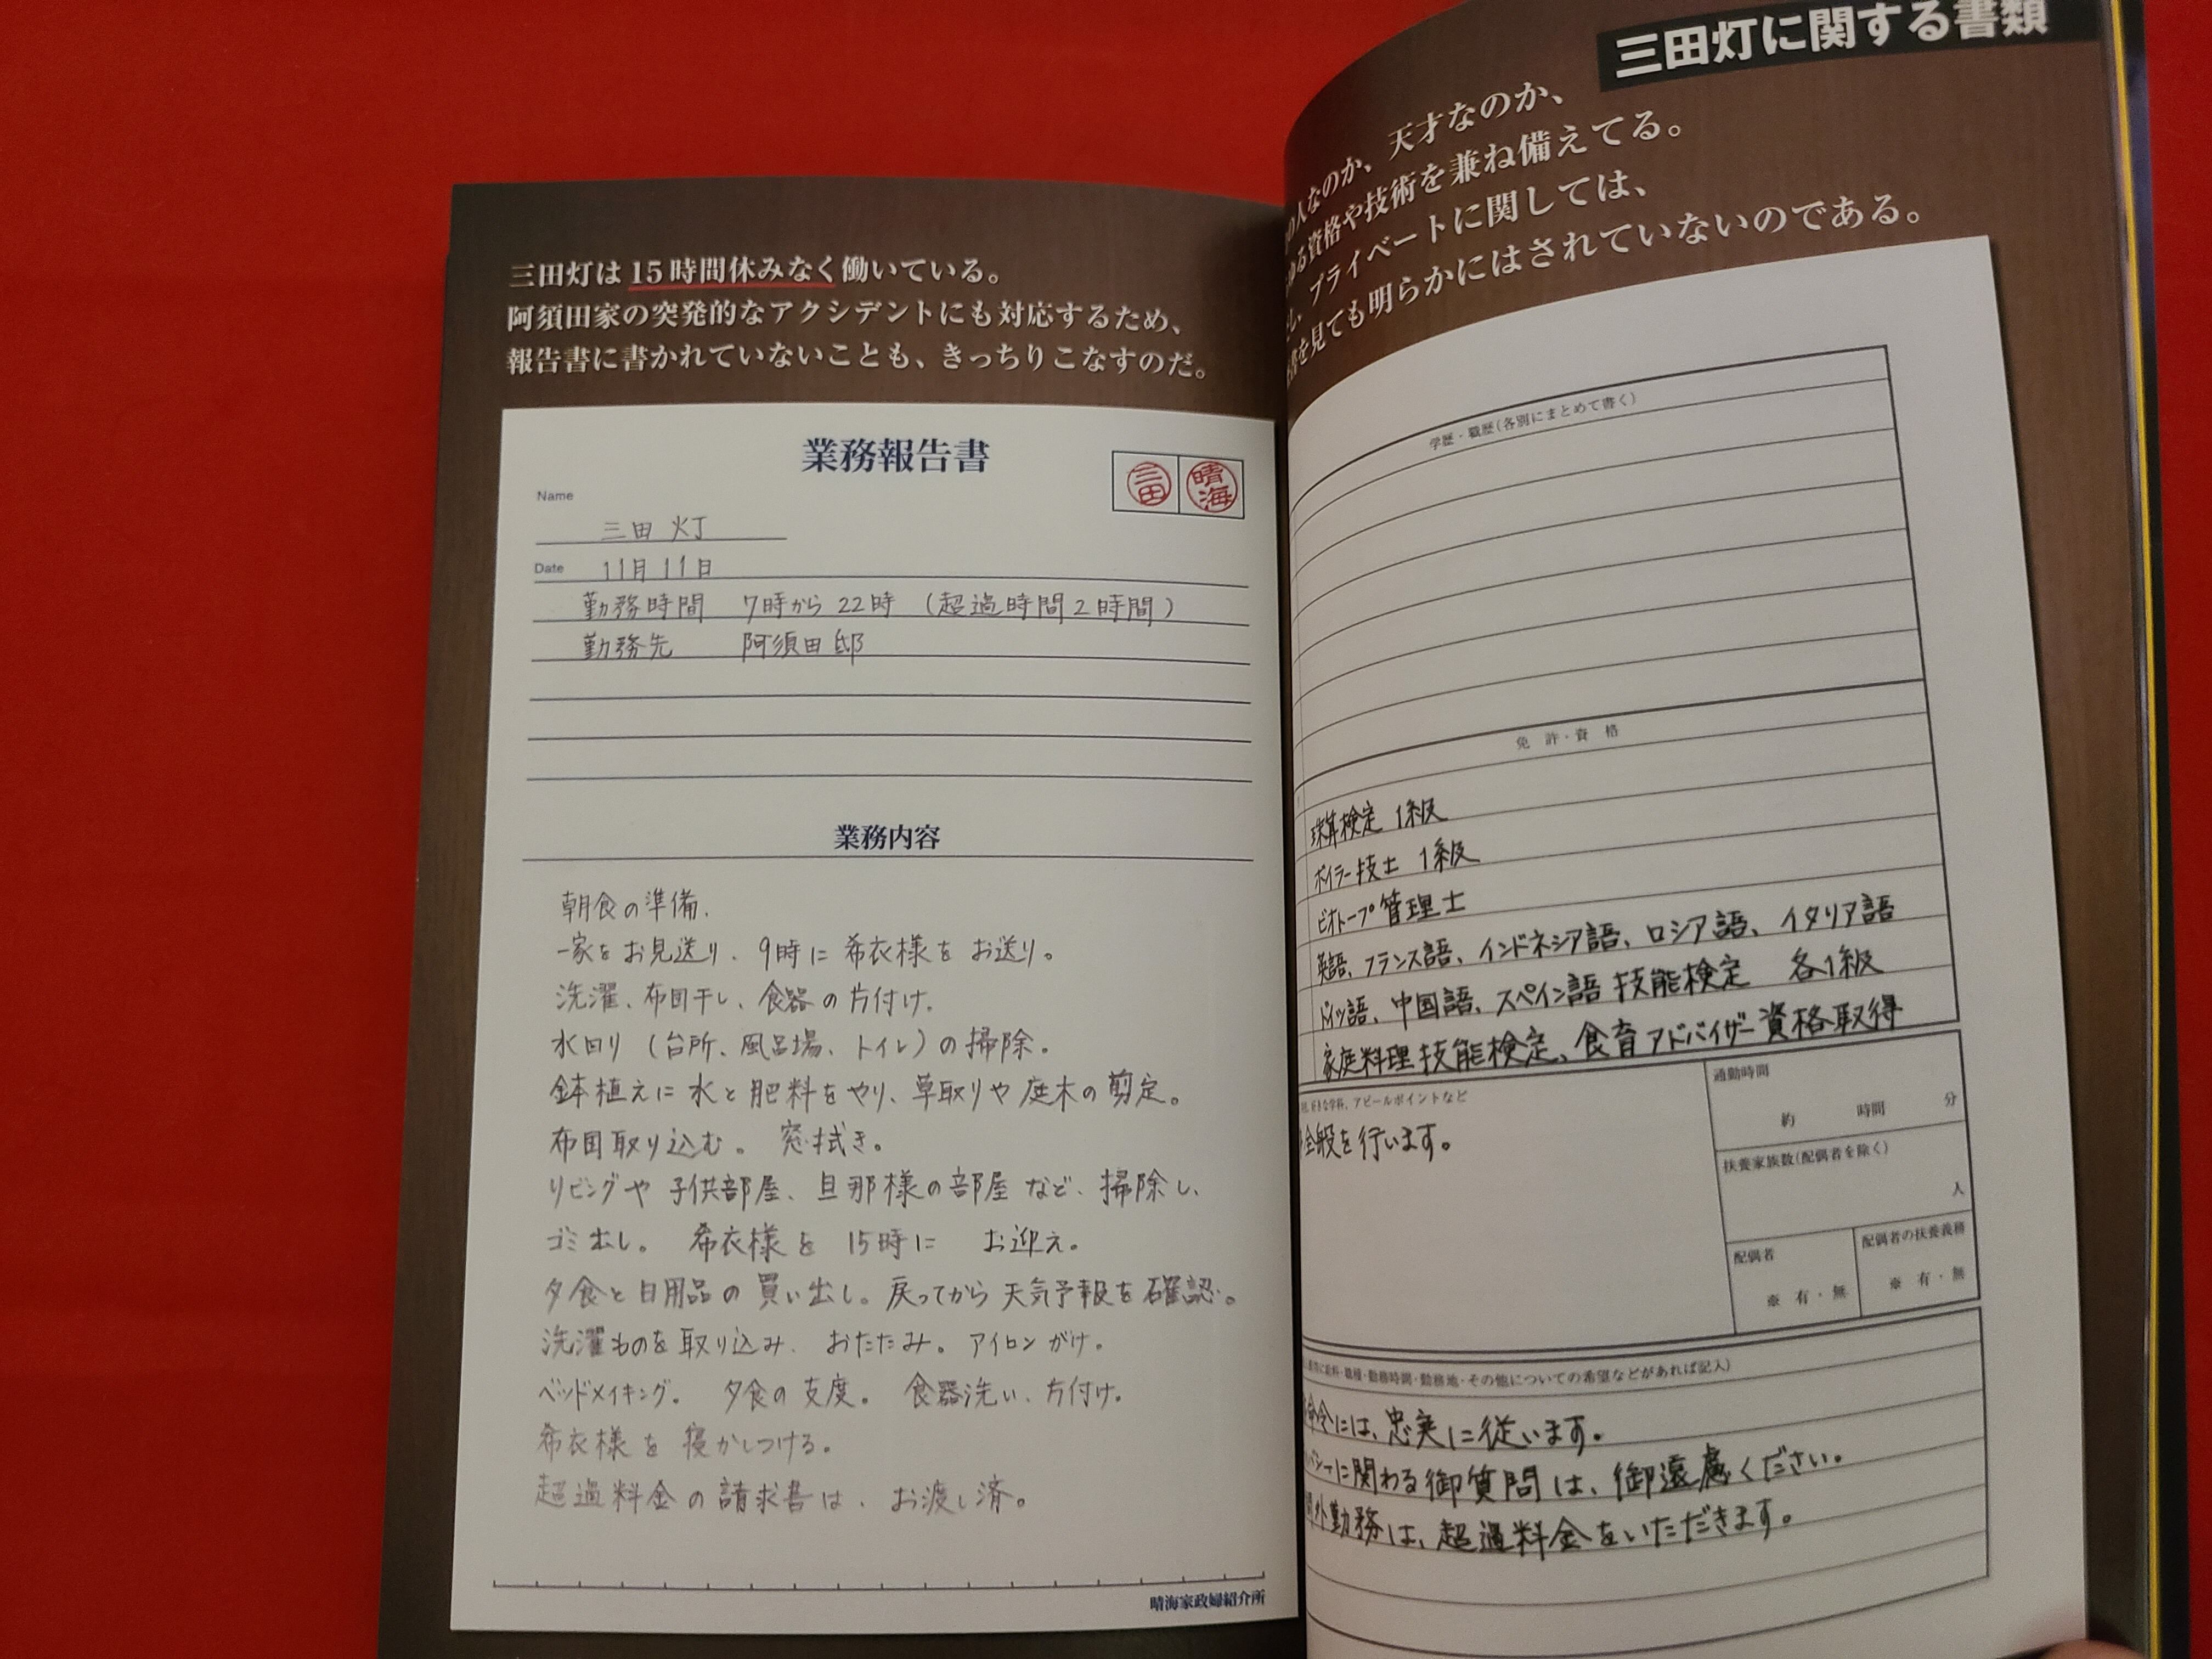 三田灯は15時間休みなく働いている。
阿須田家の突発的なアクシデントにも対応するため、
報告書に書かれていないことも、きっちりこなすのだ。
業務報告書
三田
晴海
Name
三田 灯
Date 11月11日
勤務時間 7時から22時 (超過時間2時間)
勤務先 阿須田邸
業務内容
朝食の準備、
一家をお見送り、9時に希衣様をお送り。
洗濯、布団干し、食器の片付け。
水回り(台所、風呂場、トイレ)の掃除。
鉢植えに水と肥料をやり、草取りや庭木の剪定。
布団取り込む。 窓拭き。
リビングや子供部屋、旦那様の部屋など、掃除し、
ゴミ出し。 希衣様を15時に お迎え。
夕食と日用品の買い出し。戻ってから天気予報を確認。
洗濯ものを取り込み、おたたみ。アイロンがけ。
ベッドメイキング。 夕食の支度。 食器洗い、片付け。
希衣様を寝かしつける。
超過料金の請求書は、お渡し済。
晴海家政婦紹介所
三田灯に関する書類
人なのか、天才なのか、
ゆる資格や技術を兼ね備えてる。
プライベートに関しては、
書を見ても明らかにはされていないのである。
学歴・職歴(各別にまとめて書く)
免許・資格
珠算検定 1級
ボイラー技士 1級
ビオトープ管理士
英語、フランス語、インドネシア語、ロシア語、イタリア語
ドイツ語、中国語、スペイン語 技能検定 各1級
家庭料理技能検定、食育アドバイザー資格取得
好きな学科、アピールポイントなど
全般を行います。
通勤時間
約 時間 分
扶養家族数(配偶者を除く)
人
配偶者
※ 有・無
配偶者の扶養義務
※ 有・無
給料・職種・勤務時間・勤務地・その他についての希望などがあれば記入)
命令には、忠実に従います。
バシーに関わる御質問は、御遠慮ください。
間外勤務は、超過料金をいただきます。